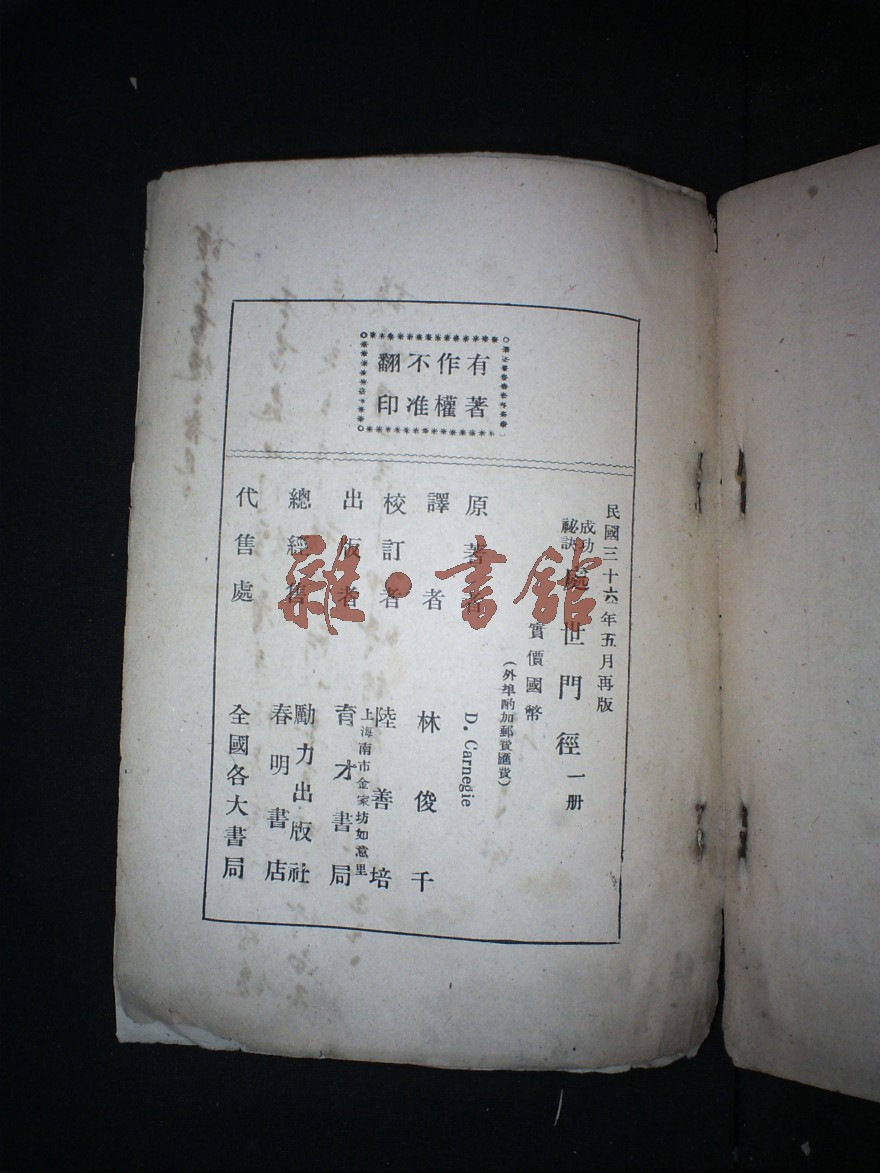 有著
作權
不准
翻印
民國三十六年五月再版
成功
祕訣
處世門徑一册
實價國幣
(外埠酌加郵費匯費)
原著者 D. Carnegie
譯者 林俊千
校訂者 陸善培
上海南市金家坊如意里
出版者 育才書局
總經售 勵力出版社
春明書店
代售處 全國各大書局
雜·書舘